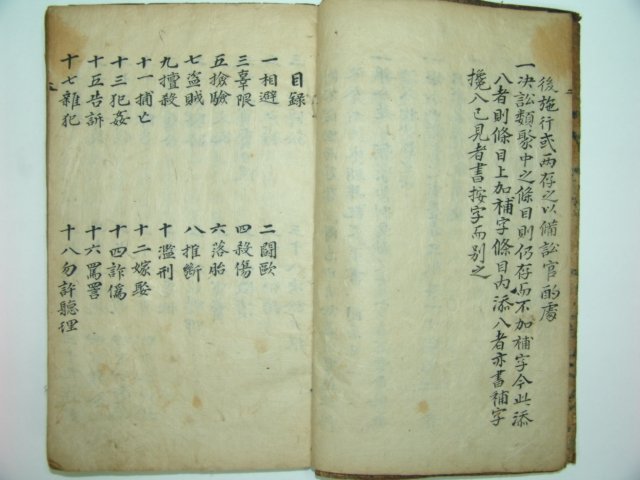 後施行或両存之以備訟官酌處
一决訟類聚中之條目則仍存而不加補字今此添
入者則條目上加補字條目内添入者亦書補字
攙入已見者書按字而别之
目録
一相避 二鬪歐
三辜限 四殺傷
五撿驗 六落胎
七盗賊 八推斷
九擅殺 十濫刑
十一捕亡 十二嫁娶
十三犯姦 十四詐僞
十五告訴 十六罵詈
十七雜犯 十八勿許聽理